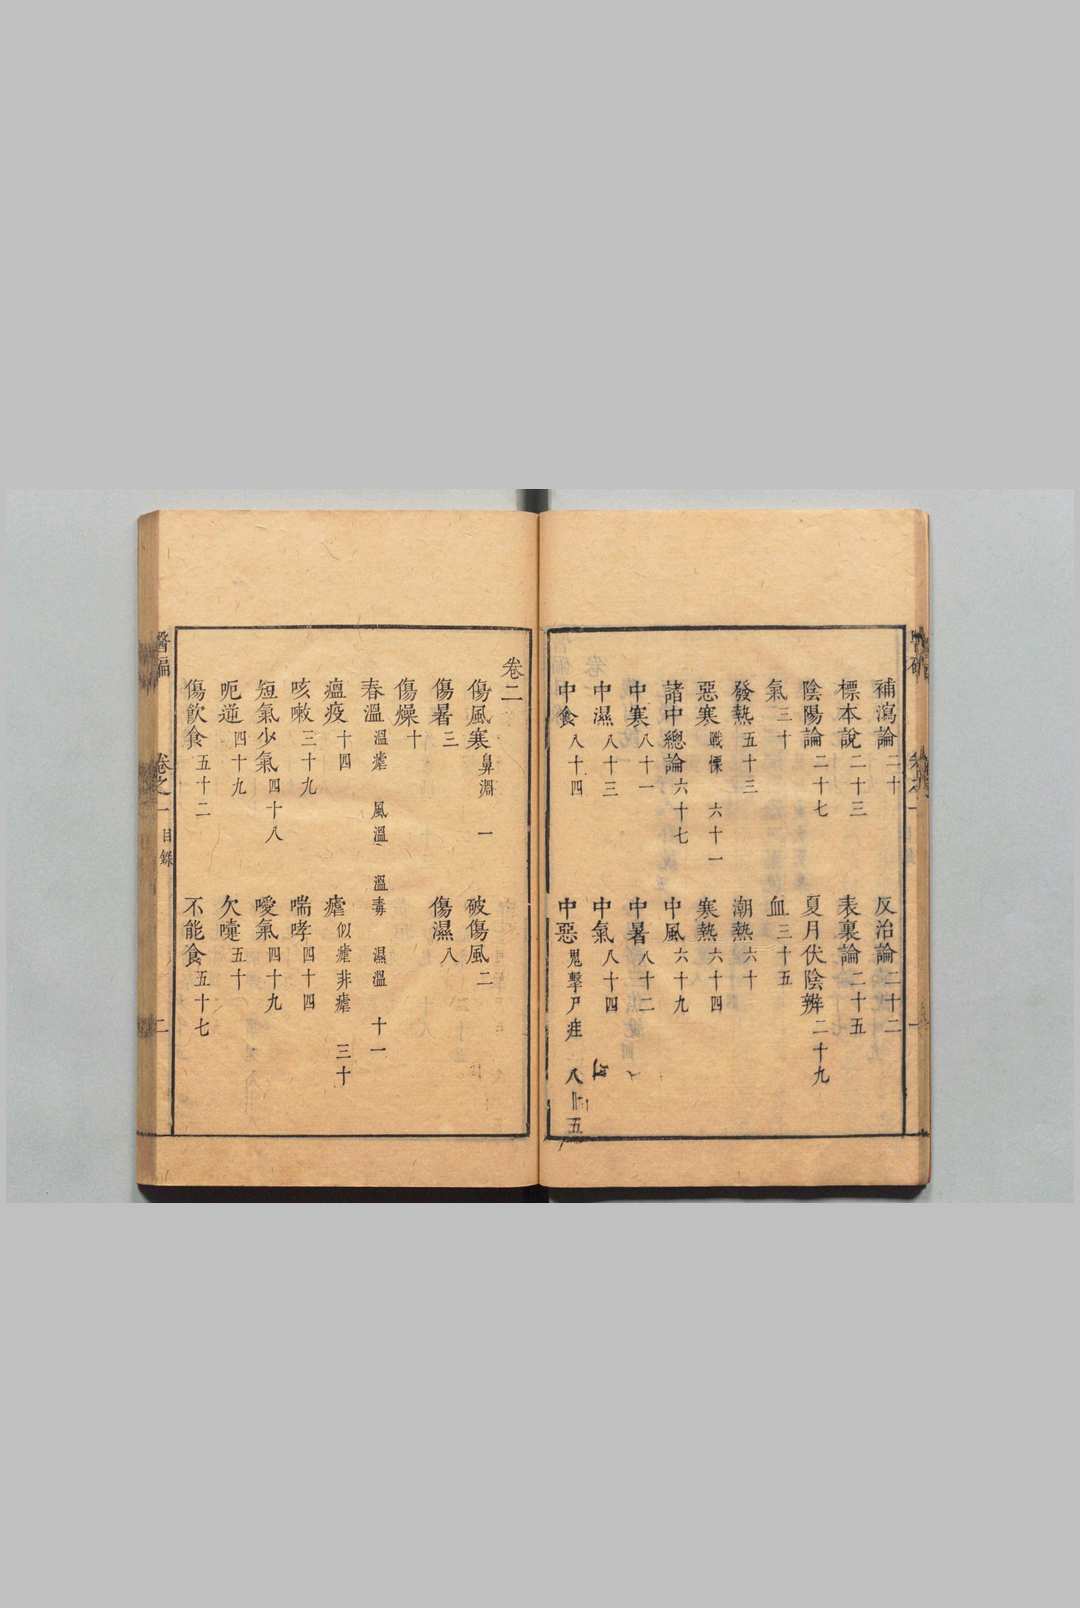 補瀉論二十 反治論二十二
標本說二十三 表裏論二十五
陰陽論二十七 夏月伏陰辨二十九
氣三十 血三十五
發熱五十三 潮熱六十
惡寒戰慄 六十一 寒熱六十四
諸中總論六十七 中風六十九
中寒八十一 中暑八十二
中濕八十三 中氣八十四
中食八十四 中惡鬼擊尸疰 八十五
卷二
傷風寒鼻淵 一 破傷風二
傷暑三 傷濕八
傷燥十
春溫溫瘧 風溫 溫毒 濕溫 十一
瘟疫十四 瘧似瘧非瘧 三十
咳嗽三十九 喘哮四十四
短氣少氣四十八 噯氣四十九
呃逆四十九 欠嚏五十
傷飲食五十二 不能食五十七
醫碥 卷之一 目錄 二